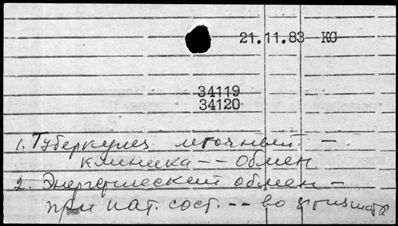 21.11.83 KO
34119
34120
1. Туберкулез легочный —
клиника -- Обмен
2. Энергетический обмен —
при пат. сост. -- во